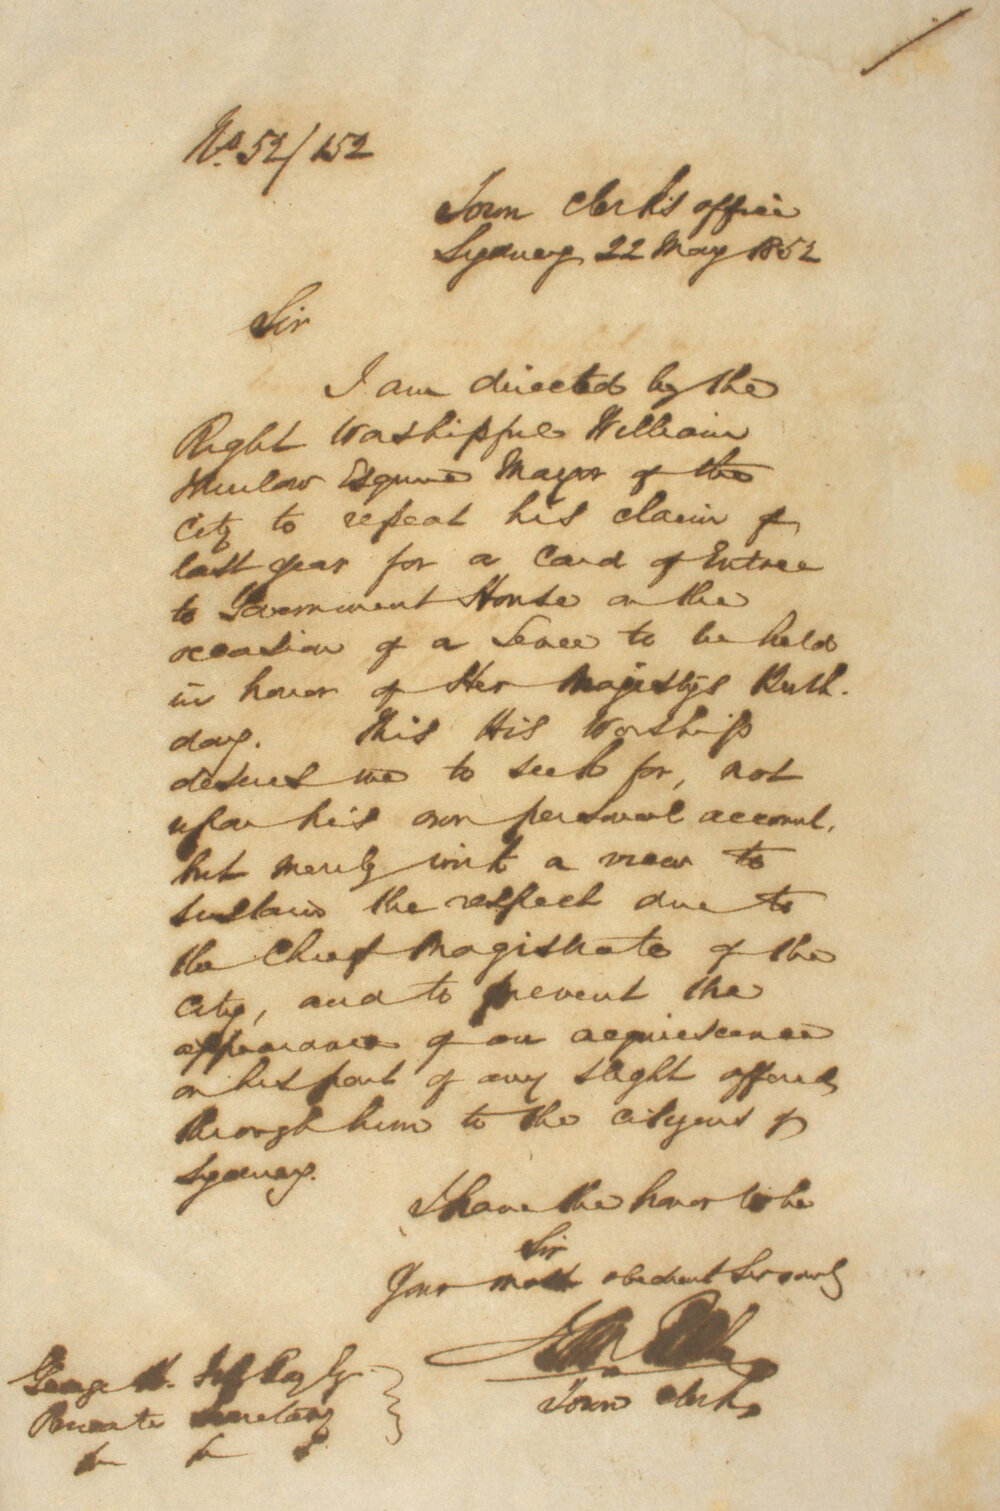 No. 52/152
Town Clerk's office
Sydney 22 May 1852
Sir
I am directed by the
Right Worshipful William
Thurlow Esquire Mayor of the
City to repeat his claim of
last year for a Card of Entree
to Government House on the
occasion of a Levee to be held
in honor of Her Majestys Birth-
day. This His Worship
desires me to seek for, not
upon his own personal account,
but merely with a view to
sustain the respect due to
the Chief Magistrate of the
City, and to prevent the
appearance of an acquiescence
on his part of any slight offered
through him to the citizens of
Sydney.
I have the honor to be
Sir
Your most obedient Servant
Town Clerk
George H.
Private Secretary